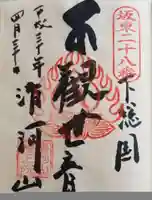 坂東二十八番
下總国
千觀世音
滑河山
平成三十年
四月三十日